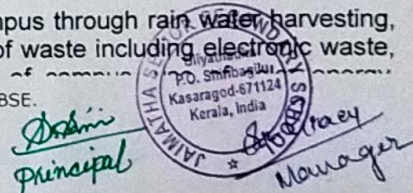 pus through rain water harvesting,
of waste including electronic waste,
BSE.
JAIMATHA SENIOR SECONDARY SCHOOL
P.O. Shiribagilu
Kasaragod-671124
Kerala, India
Principal
Manager